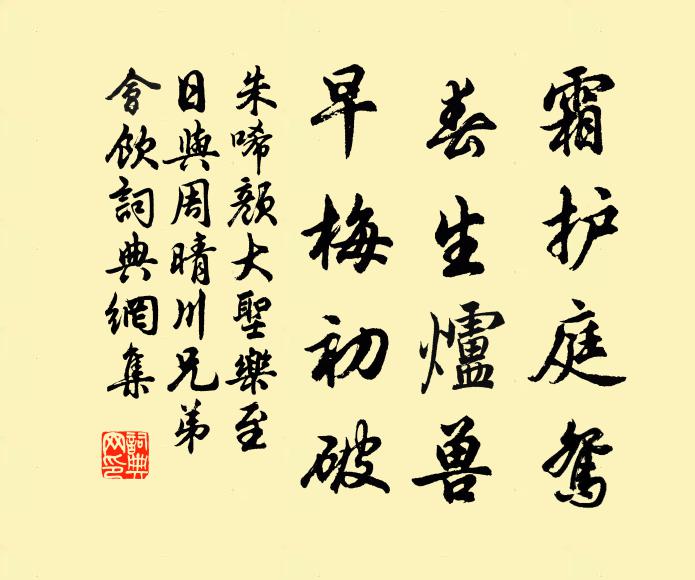 霜护庭鸳
春生爐兽
早梅初破
朱唏颜大聖樂至
日與周晴川兄弟
會飲詞典網集
詞典
网印